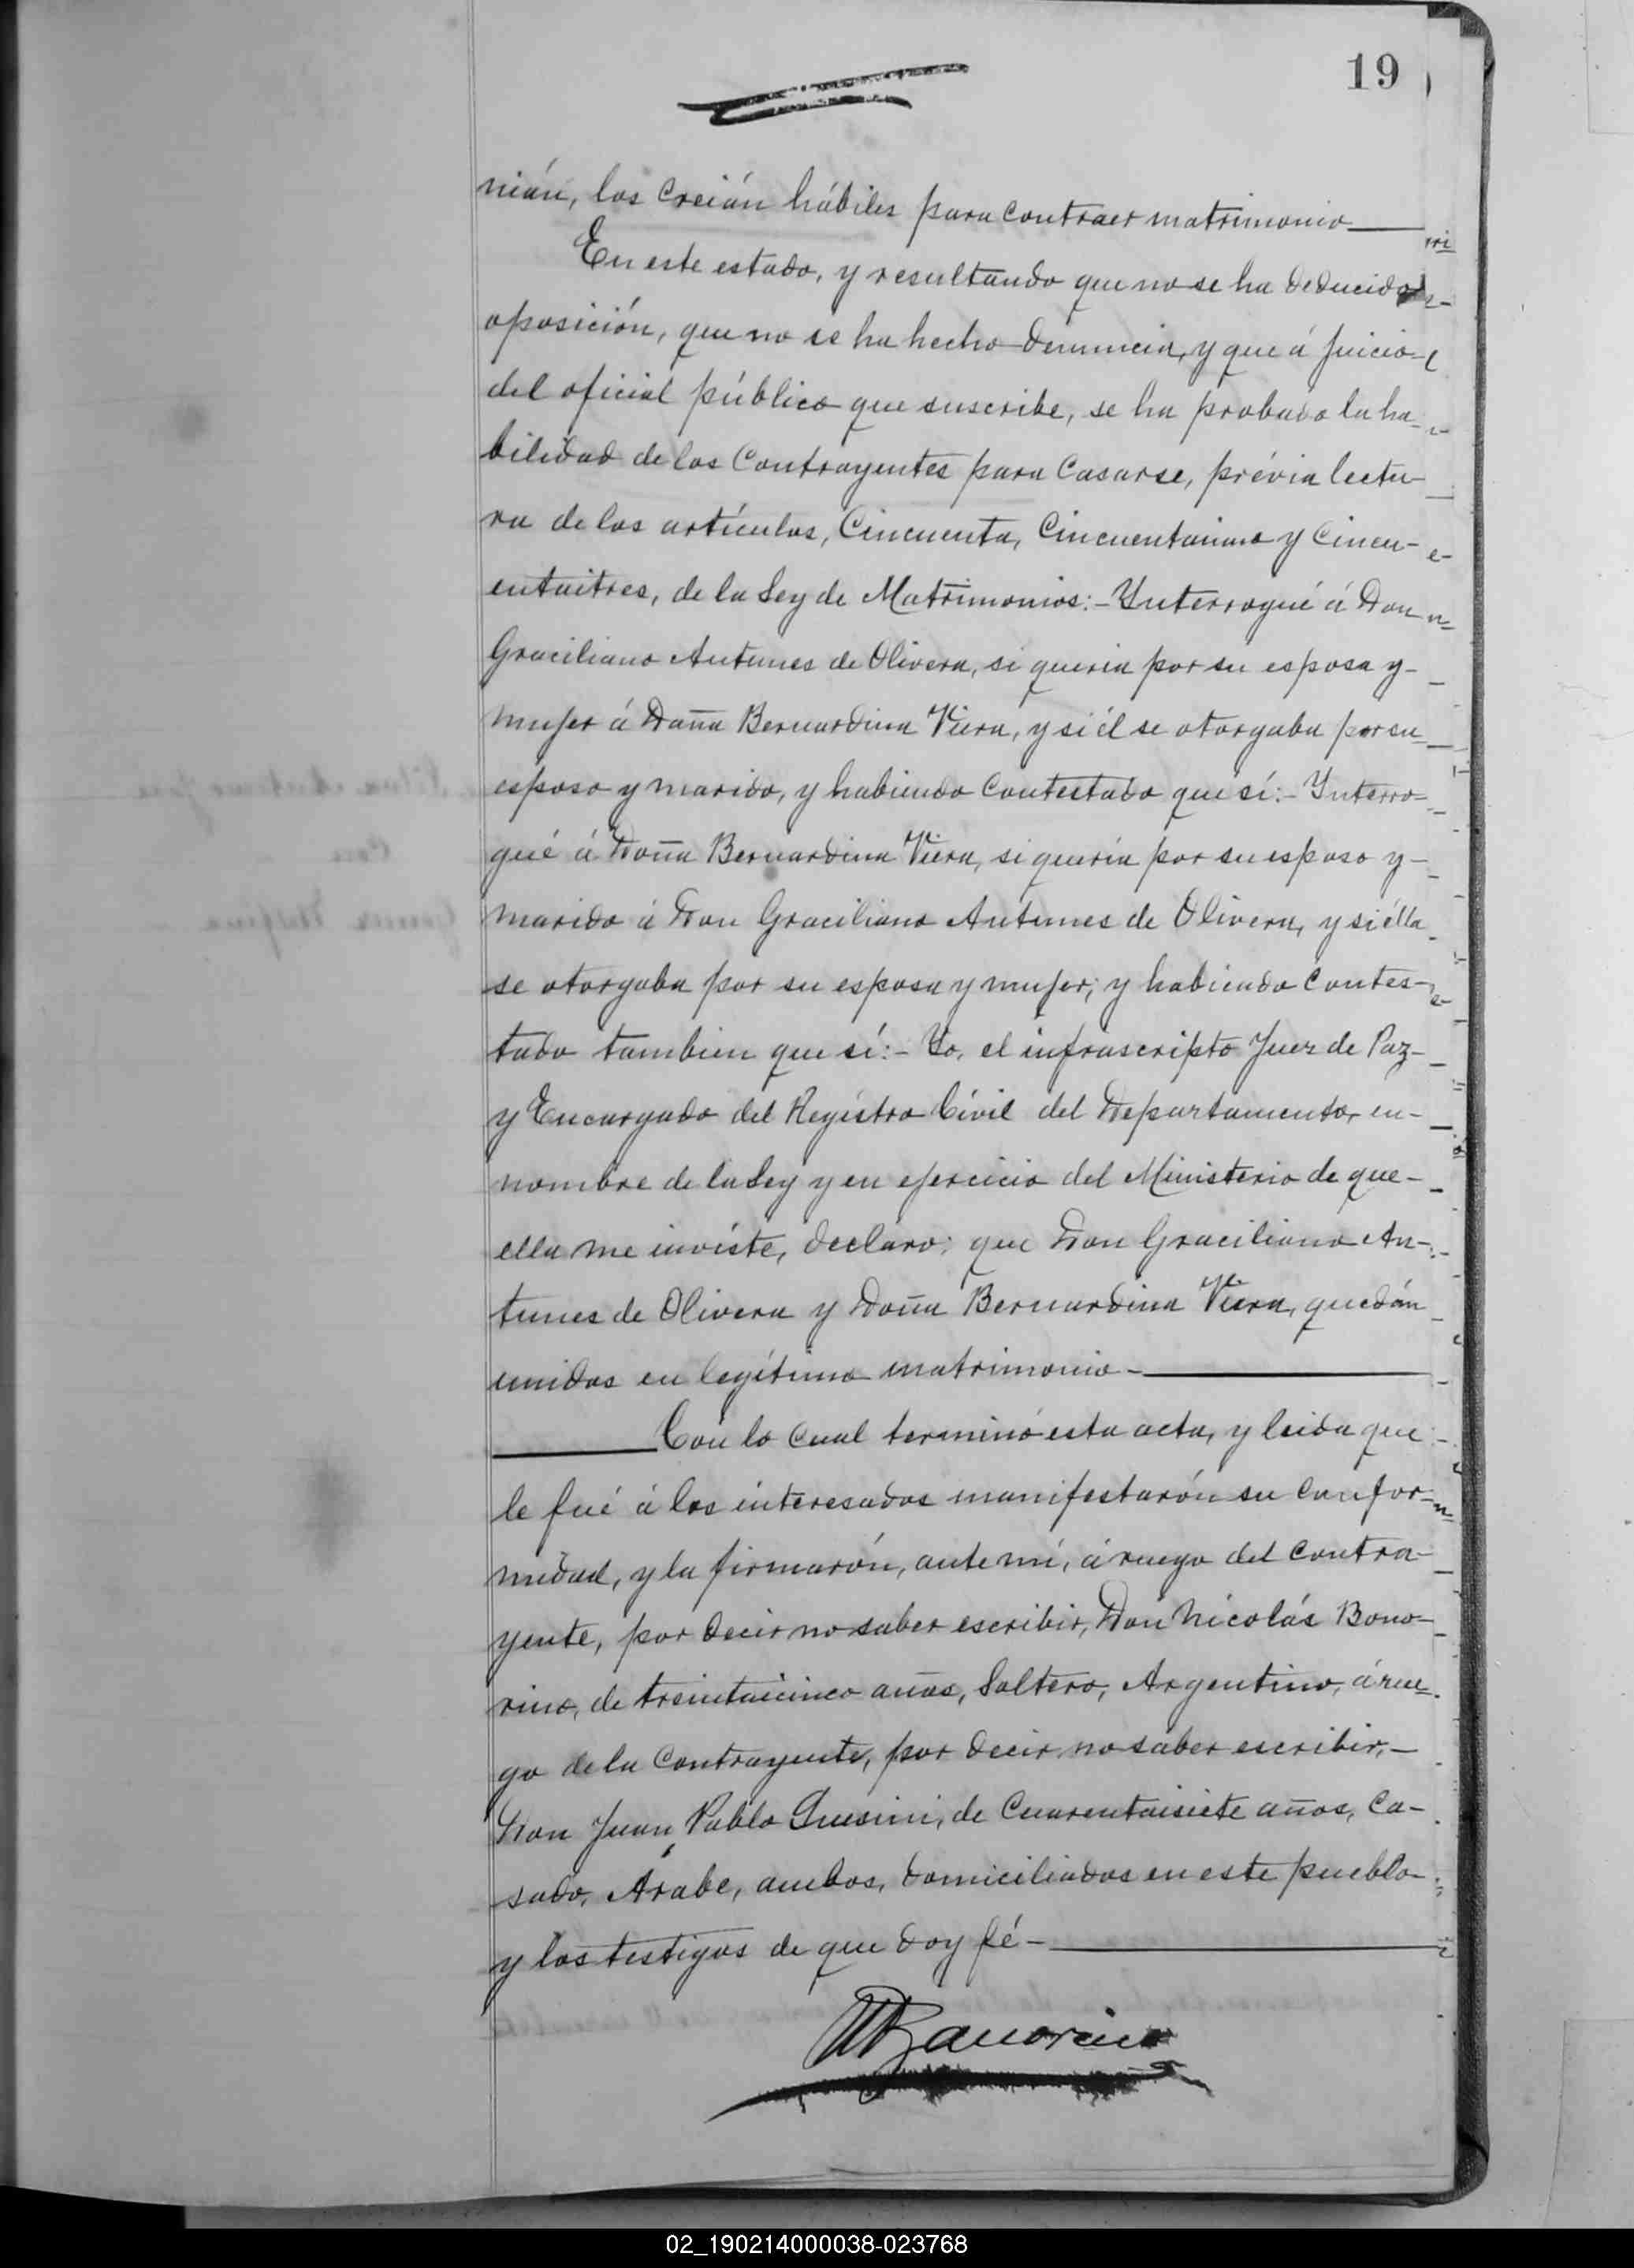 19
nián, los creián hábiles para contraer matrimonio
En este estado, y resultando que no se ha deducido
oposición, que no se ha hecho denuncia, y que á juicio
del oficial público que suscribe, se ha probado la ha-
bilidad de los Contrayentes para Casarse, prévia lectu-
ra de los artículos, Cincuenta, Cincuentaiuno y Cincu-
entaitres, de la Ley de Matrimonios:- Ynterrogué á Don
Graciliano Antunes de Olivera, si queria por su esposa y-
mujer á Doña Bernardina Viera, y si él se otorgaba por su
esposo y marido, y habiendo Contestado que sí:- Ynterro-
gué á Doña Bernardina Viera, si queria por su esposo y-
marido á Don Graciliano Antunes de Olivera, y si élla
se otorgaba por su esposa y mujer; y habiendo Contes-
tado tambien que sí:- Yo, el infrascripto Juez de Paz-
y Encargado del Registro Civil del Departamento, en-
nombre de la Ley y en ejercicio del Ministerio de que-
ella me inviste, declaro: que Don Graciliano An-
tunes de Olivera y Doña Bernardina Viera, quedán
unidos en legítimo matrimonio-
Con lo cual terminó esta acta, y leida que
le fué á los interesados manifestarón su Confor-
midad, y la firmarón, ante mí, á ruego del Contra-
yente, por decir no saber escribir, Don Nicolás Bono-
rino, de treintaicinco años, Soltero, Argentino, á rue-
go de la Contrayente, por decir no saber escribir,-
Don Juan Pablo, de Cuarentaisiete años, Ca-
sado, Arabe, ambos, domiciliados en este pueblo-
y los testigos de que doy fé-
NBonorino
02_190214000038-023768